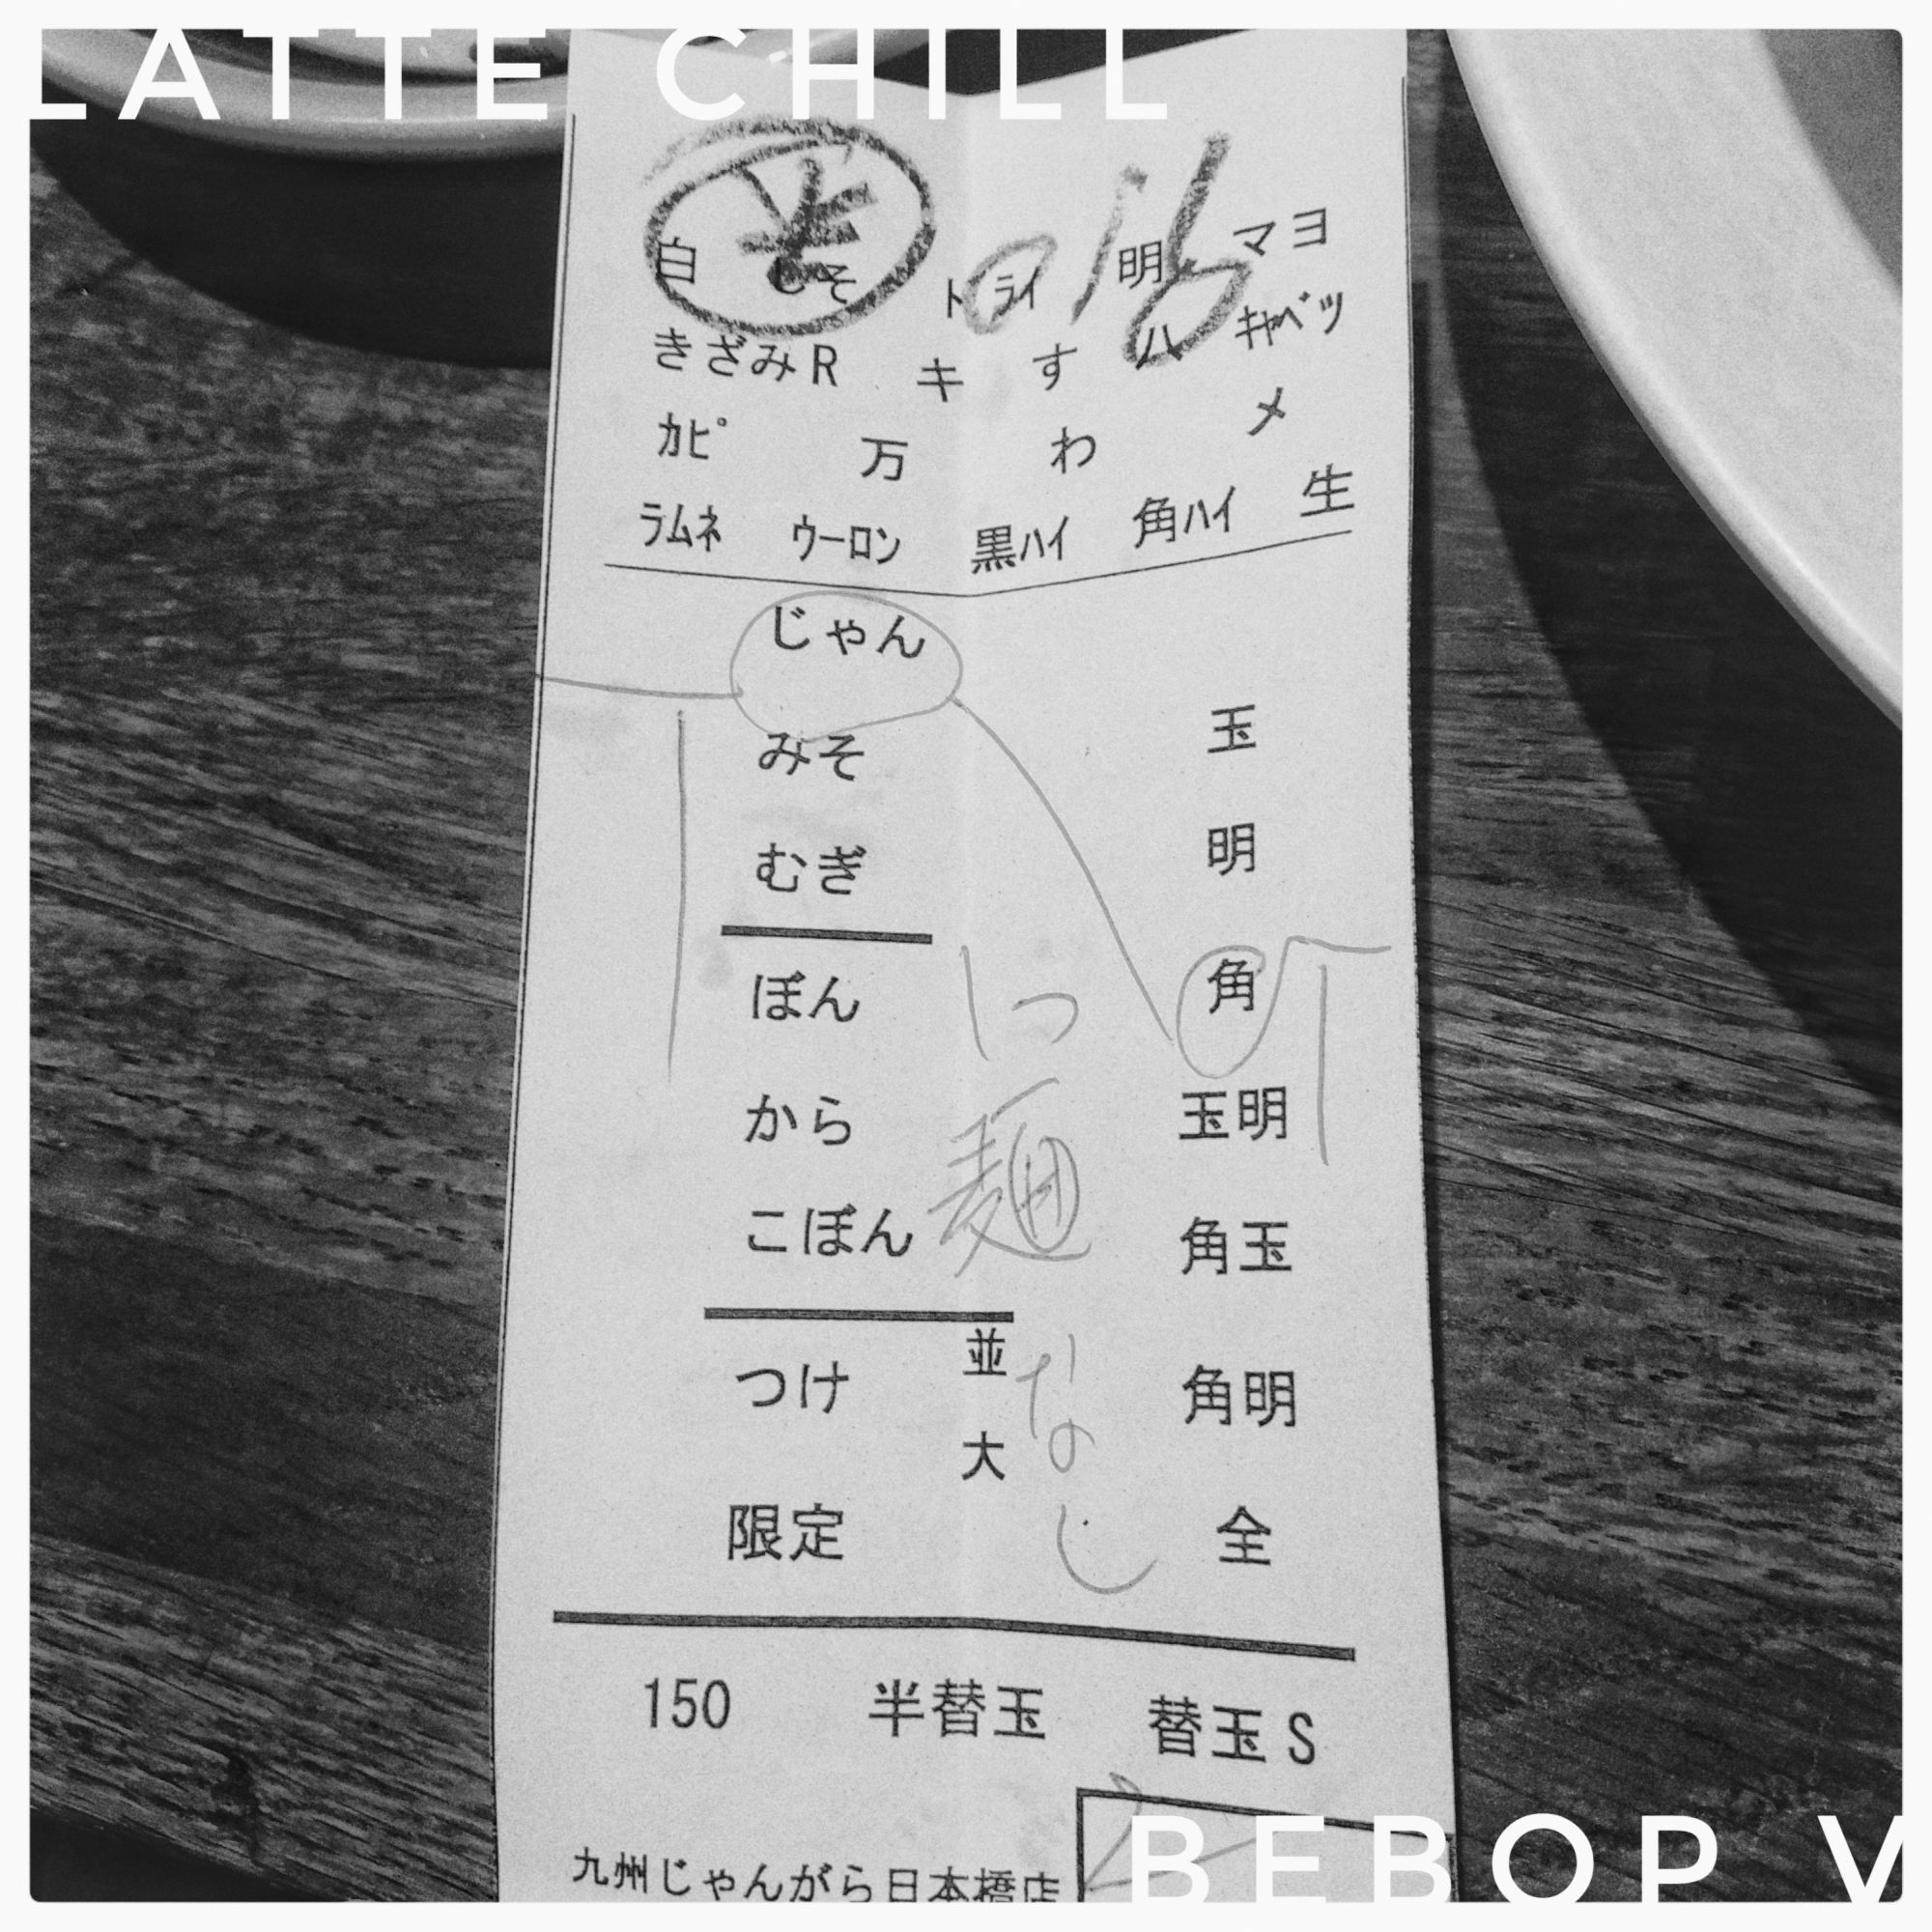 LATTE CHILL
白 しそ トライ 明 マヨ
きざみR キ す ハ キャベツ
カピ 万 わ メ
ラムネ ウーロン 黒ハイ 角ハイ 生
じゃん
みそ 玉
むぎ 明
ぼん 角
から 麺 玉明
こぼん 角玉
つけ 並 なし 角明
大
限定 全
150 半替玉 替玉S
九州じゃんがら日本橋店
BEBOP V